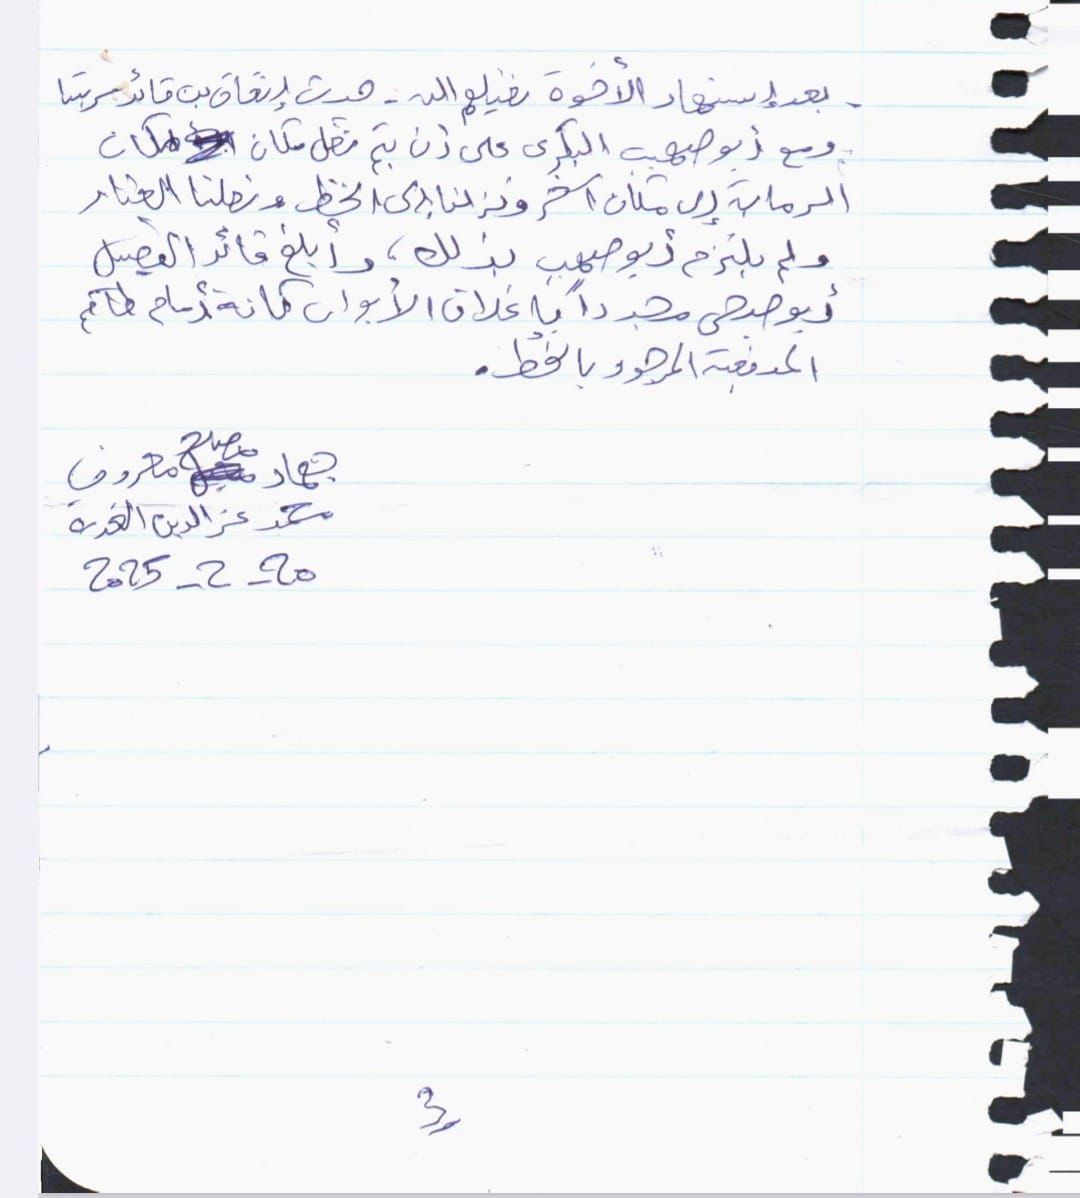 - بعد إستشهاد الأخوة تقبلهم الله - حدث إتفاق بين قائد سريتنا
ومع أبو صهيب البكري على أن يتم نقل مكان مكان
الرماية إلى مكان آخر ونزلنا إلى الخط ونقلنا العتاد
ولم يلتزم أبو صهيب بذلك، وأبلغ قائد الفصيل
أبو صبحي مجدداً بإغلاق الأبواب كافة أمام طاقم
المدفعية الموجود بالخط.
جهاد مصباح معروف
محمد عز الدين
20-2-2025
3